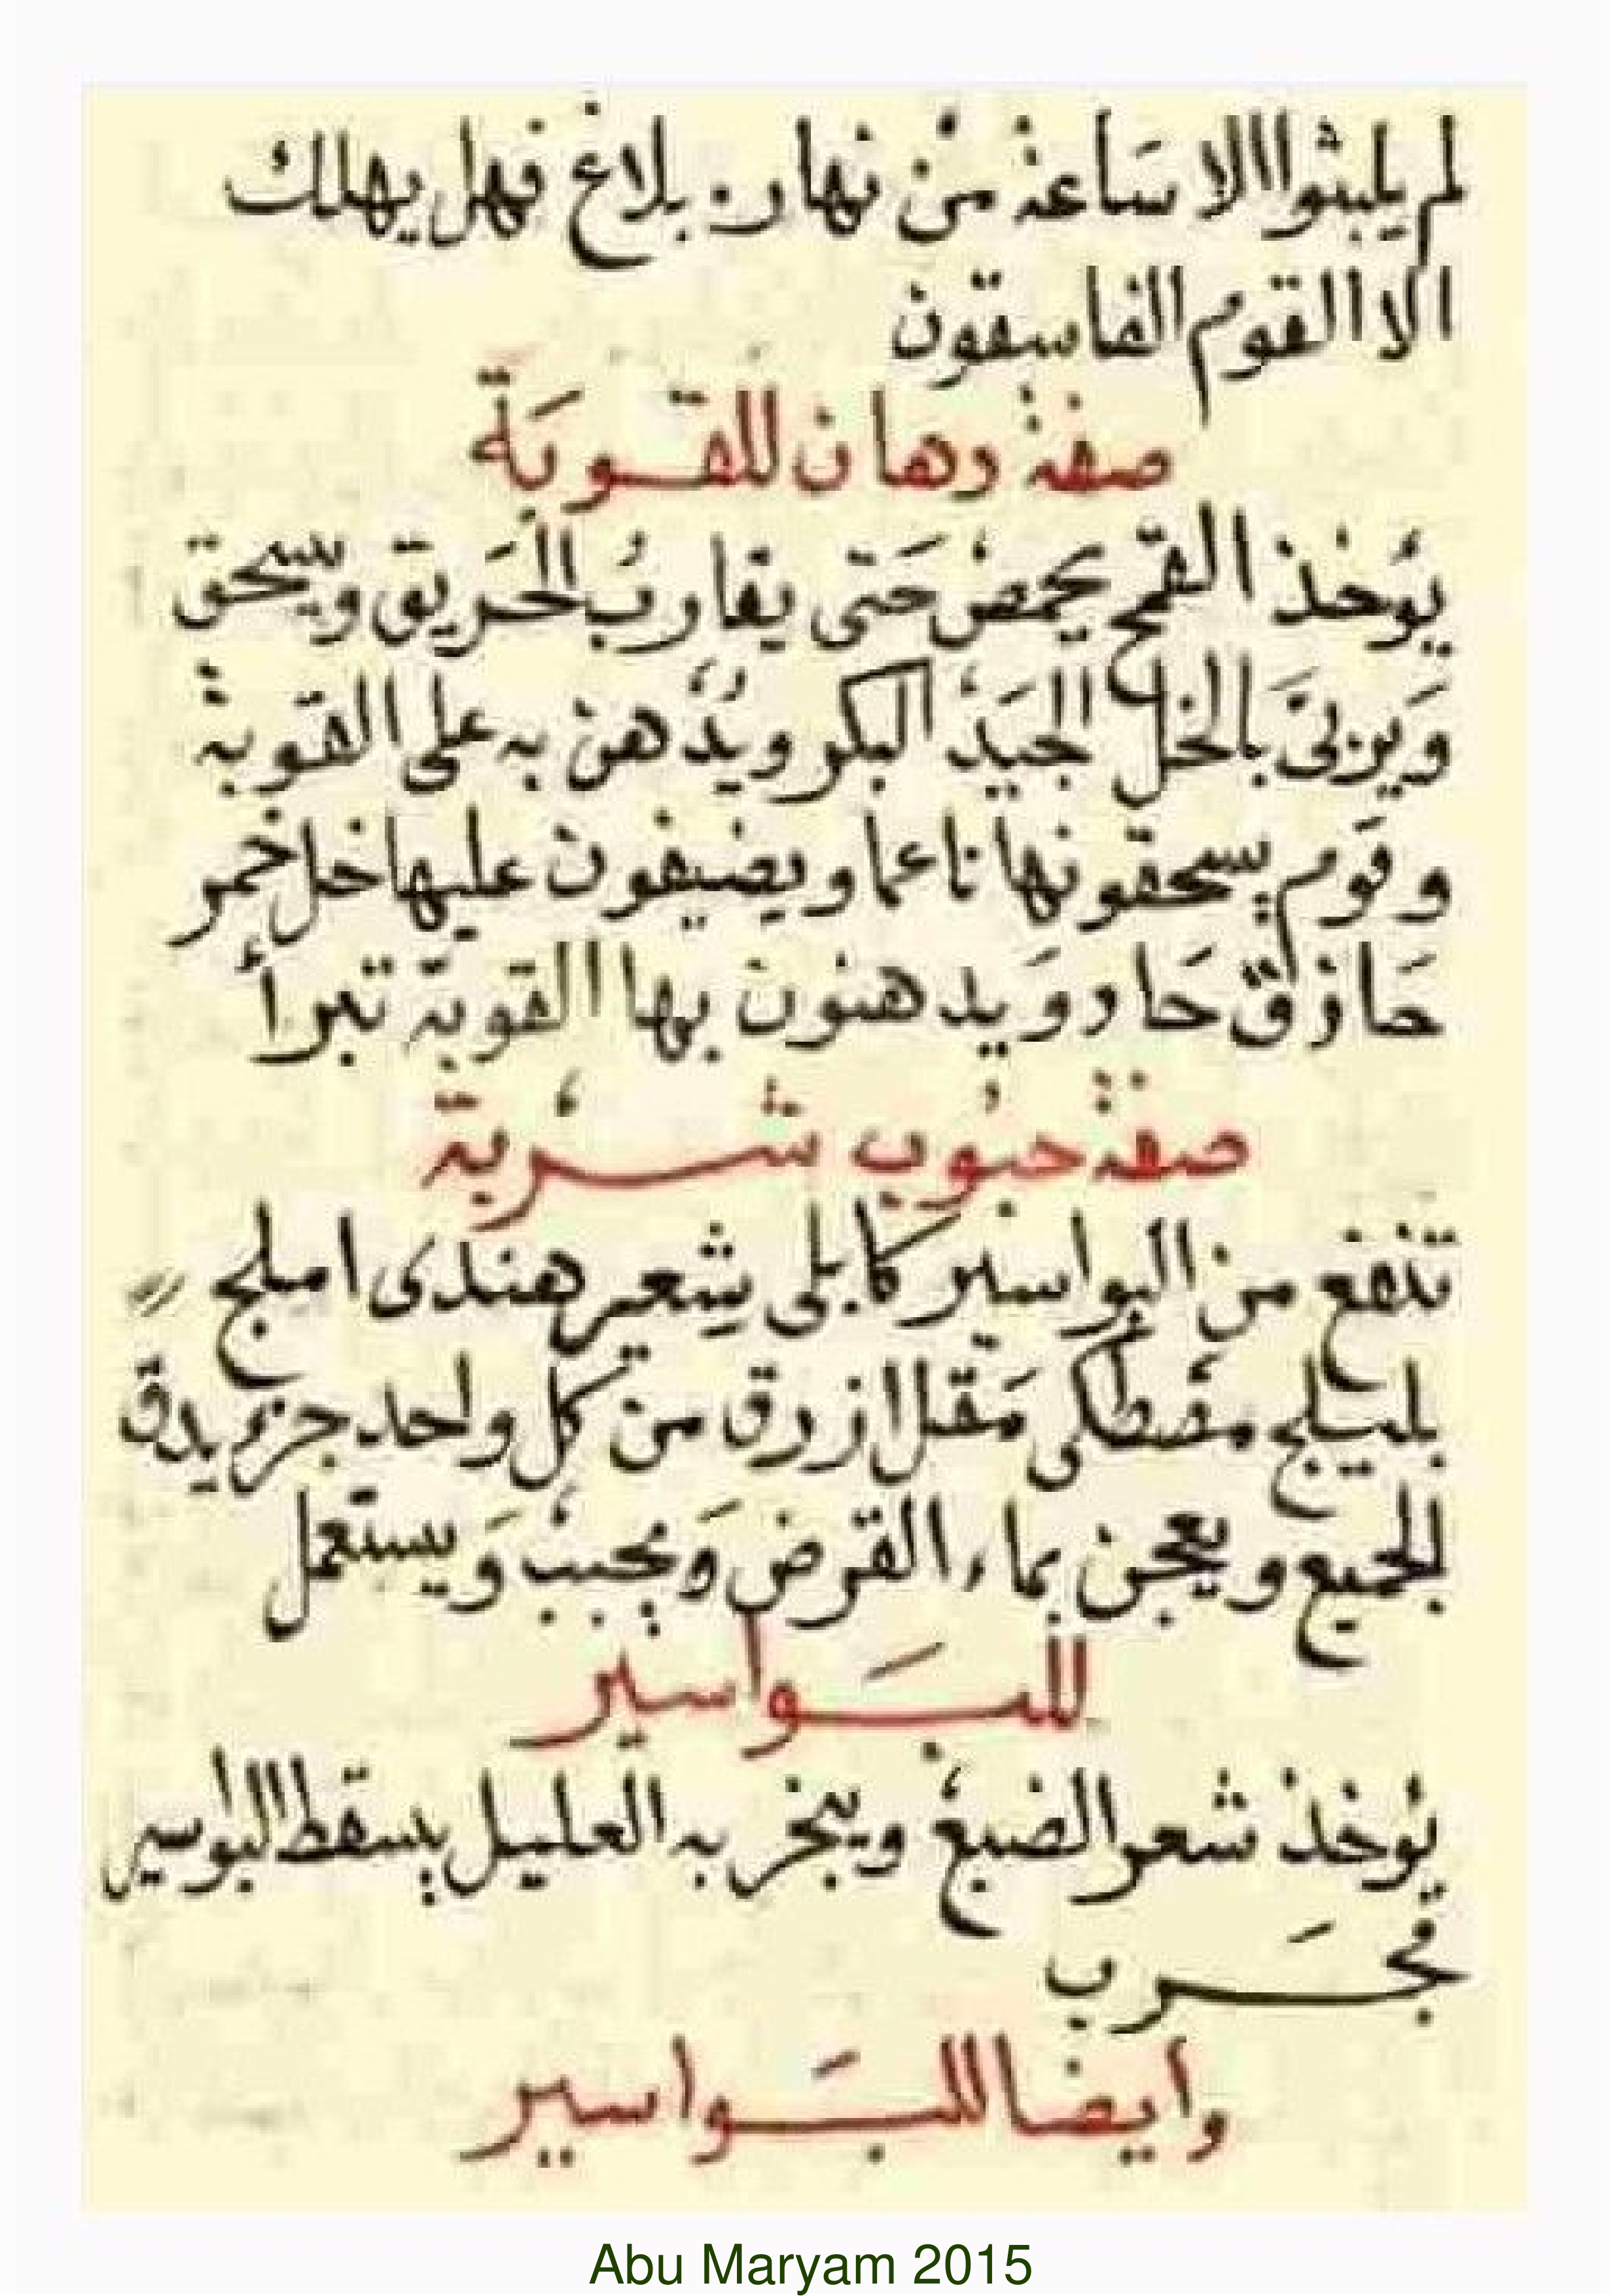 لم يلبثوا الا ساعة من نهار بلاغ فهل يهلك
الا القوم الفاسقون
صفة دهان للقوبة
يؤخذ القمح يحمض حتى يقارب الحريق ويسحق
بالخل الجيد البكر ويدهن به على القوبة
وقوم يسحقونها ناعما ويضيفون عليها خل خمر
حاذق حاد ويدهنون بها القوبة تبرأ
صفة حبوب شربة
تنفع من البواسير كابلى شعير هندى املج
بليلج مصطكى مقل ازرق من كل واحد جزء يدق
الجميع ويعجن بماء القرض ويحبب ويستعمل
للبواسير
يؤخذ شعر الضبع ويبخر به العليل يسقط البواسير
مجرب
وايضا للبواسير
Abu Maryam 2015